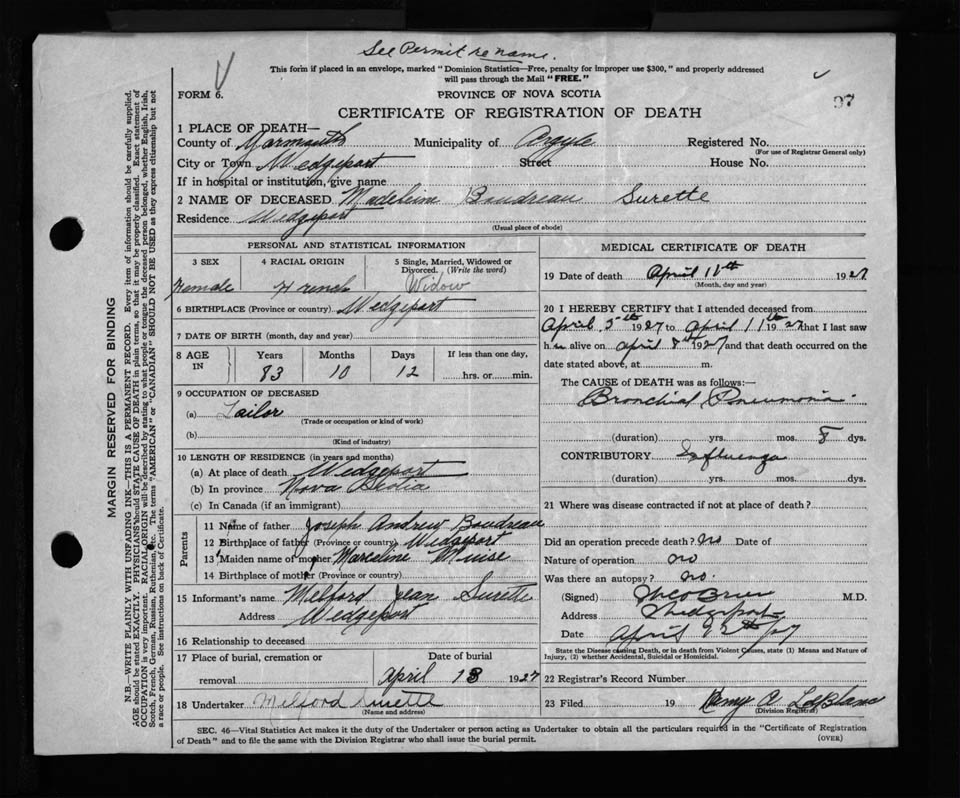 See Permit re name.
This form if placed in an envelope, marked "Dominion Statistics—Free, penalty for improper use $300," and properly addressed
will pass through the Mail "FREE."
FORM 6.
PROVINCE OF NOVA SCOTIA
97
CERTIFICATE OF REGISTRATION OF DEATH
1 PLACE OF DEATH—
County of Yarmouth Municipality of Argyle Registered No.
(For use of Registrar General only)
City or Town Wedgeport Street House No.
If in hospital or institution, give name
2 NAME OF DECEASED Madeleine Boudreau Surette
Residence Wedgeport
(Usual place of abode)
PERSONAL AND STATISTICAL INFORMATION
3 SEX 4 RACIAL ORIGIN 5 Single, Married, Widowed or
Divorced. (Write the word)
Female French Widow
6 BIRTHPLACE (Province or country) Wedgeport
7 DATE OF BIRTH (month, day and year)
8 AGE IN Years Months Days If less than one day,
83 10 12 hrs. or min.
9 OCCUPATION OF DECEASED
(a) Tailor
(Trade or occupation or kind of work)
(b)
(Kind of industry)
10 LENGTH OF RESIDENCE (in years and months)
(a) At place of death Wedgeport
(b) In province Nova Scotia
(c) In Canada (if an immigrant)
Parents
11 Name of father Joseph Andrew Boudreau
12 Birthplace of father (Province or country) Wedgeport
13 Maiden name of mother Marceline Muise
14 Birthplace of mother (Province or country)
15 Informant's name Melford Jean Surette
Address Wedgeport
16 Relationship to deceased
17 Place of burial, cremation or Date of burial
removal April 13 1927
18 Undertaker Melford Surette
(Name and address)
MEDICAL CERTIFICATE OF DEATH
19 Date of death April 11th 1927
(Month, day and year)
20 I HEREBY CERTIFY that I attended deceased from
April 5th 1927 to April 11th 1927 that I last saw
her alive on April 8th 1927 and that death occurred on the
date stated above, at m.
The CAUSE of DEATH was as follows:—
Bronchial Pneumonia
(duration) yrs. mos. 8 dys.
CONTRIBUTORY Influenza
(duration) yrs. mos. dys.
21 Where was disease contracted if not at place of death?
Did an operation precede death? no Date of
Nature of operation no
Was there an autopsy? no.
(Signed) M.D.
Address Wedgeport
Date April 12th/27
State the Disease causing Death, or in death from Violent Causes, state (1) Means and Nature of
Injury, (2) whether Accidental, Suicidal or Homicidal.
22 Registrar's Record Number
23 Filed 19 Remy A LeBlanc
(Division Registrar)
SEC. 46—Vital Statistics Act makes it the duty of the Undertaker or person acting as Undertaker to obtain all the particulars required in the "Certificate of Registration
of Death" and to file the same with the Division Registrar who shall issue the burial permit.
(OVER)
MARGIN RESERVED FOR BINDING
N.B.—WRITE PLAINLY WITH UNFADING INK—THIS IS A PERMANENT RECORD. Every item of information should be carefully supplied.
AGE should be stated EXACTLY. PHYSICIANS should STATE CAUSE OF DEATH in plain terms, so that it may be properly classified. Exact statement of
OCCUPATION is very important. RACIAL ORIGIN will be described by stating to what people or tongue the deceased person belonged, whether English, Irish,
Scotch, French, German, Russian, Ruthenian, etc. The terms "AMERICAN" or "CANADIAN" SHOULD NOT BE USED as they express citizenship but not
a race or people. See instructions on back of Certificate.